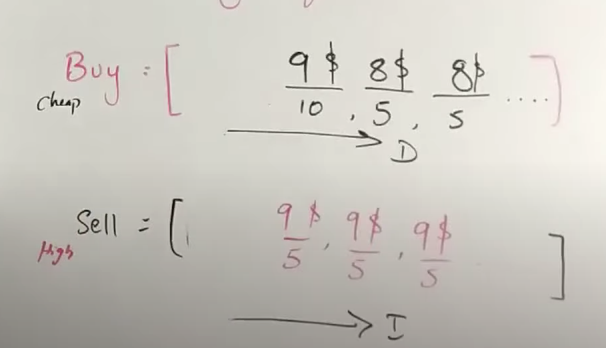 Buy = [ 9$/10, 8$/5, 8$/5 .... ]
Cheap
D
Sell = [ 9$/5, 9$/5, 9$/5 ]
High
I